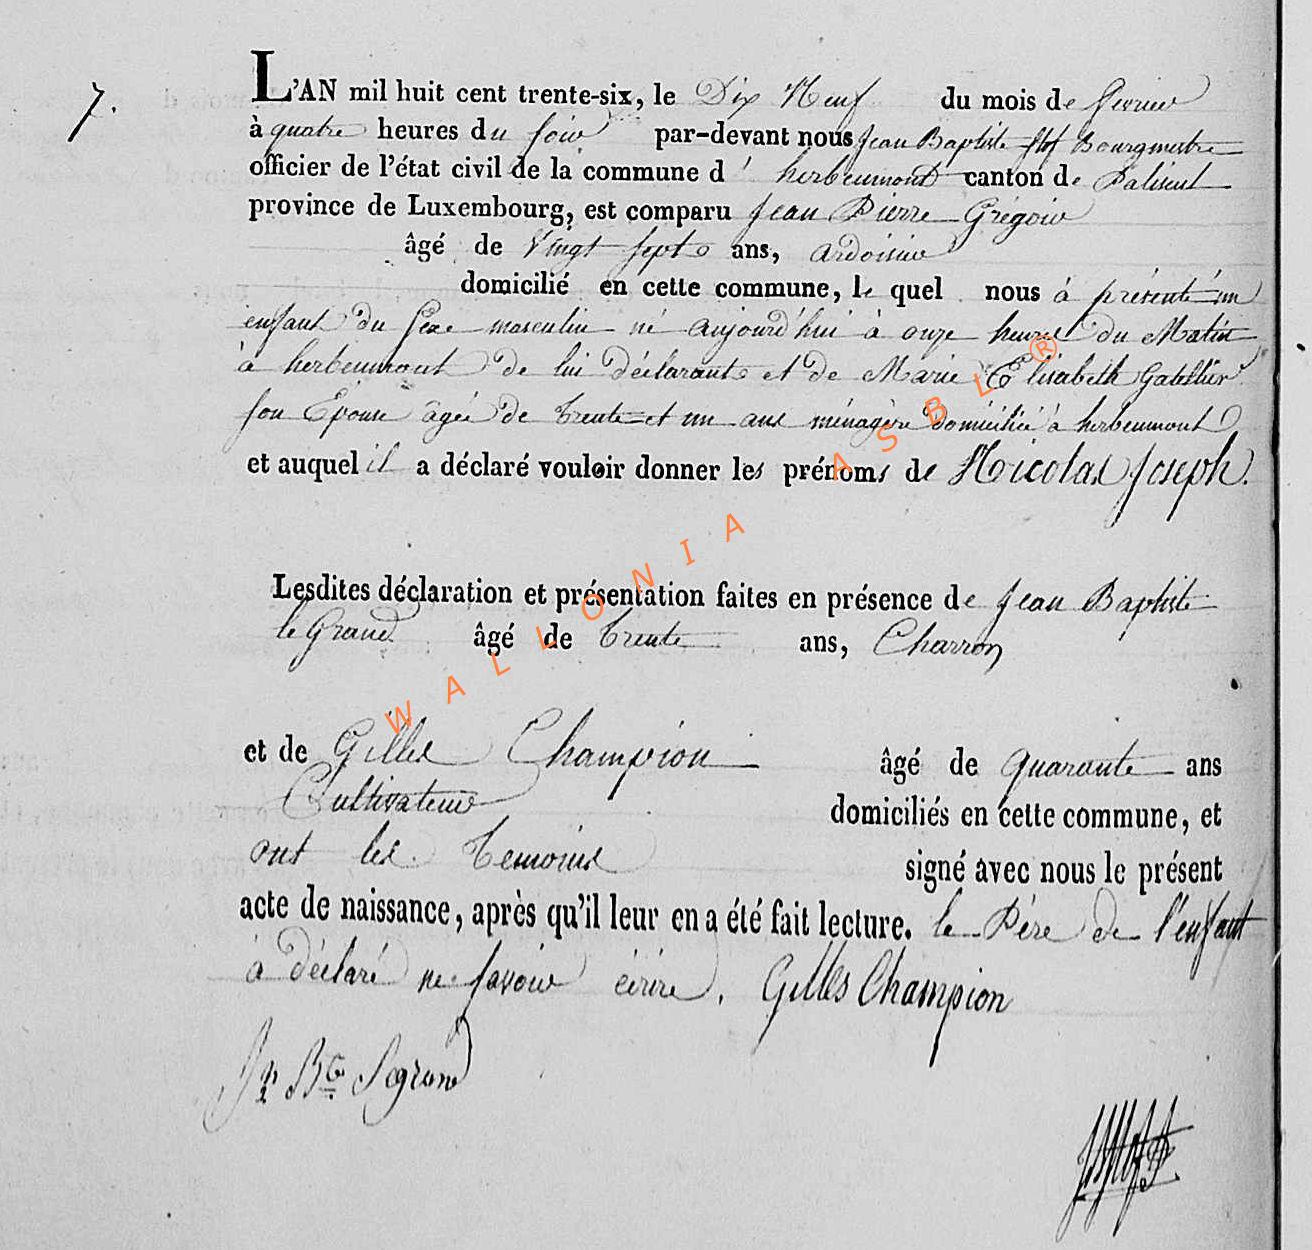 7.
L'AN mil huit cent trente-six, le Dix Neuf du mois de fevrier
à quatre heures du soir par-devant nous Jean Baptiste Bourgmestre
officier de l'état civil de la commune d' herbeumont canton de Paliseul
province de Luxembourg, est comparu Jean Pierre Grégoire
âgé de vingt sept ans, ardoisier
domicilié en cette commune, le quel nous à présenté un
enfant du sexe masculin né aujourd'hui à onze heures du Matin
à herbeumont de lui déclarant et de Marie Elisabeth Gatellier
son Epouse âgée de trente et un ans ménagère domiciliée à herbeumont
et auquel il a déclaré vouloir donner les prénoms de Nicolas Joseph.
Lesdites déclaration et présentation faites en présence de Jean Baptiste
le Grand âgé de trente ans, Charron
et de Gilles Champion âgé de quarante ans
Cultivateur domiciliés en cette commune, et
ont les temoins signé avec nous le présent
acte de naissance, après qu'il leur en a été fait lecture. le Père de l'enfant
à déclaré ne savoir écrire. Gilles Champion
Jn Bte Legrand
WALLONIA ASBL ®